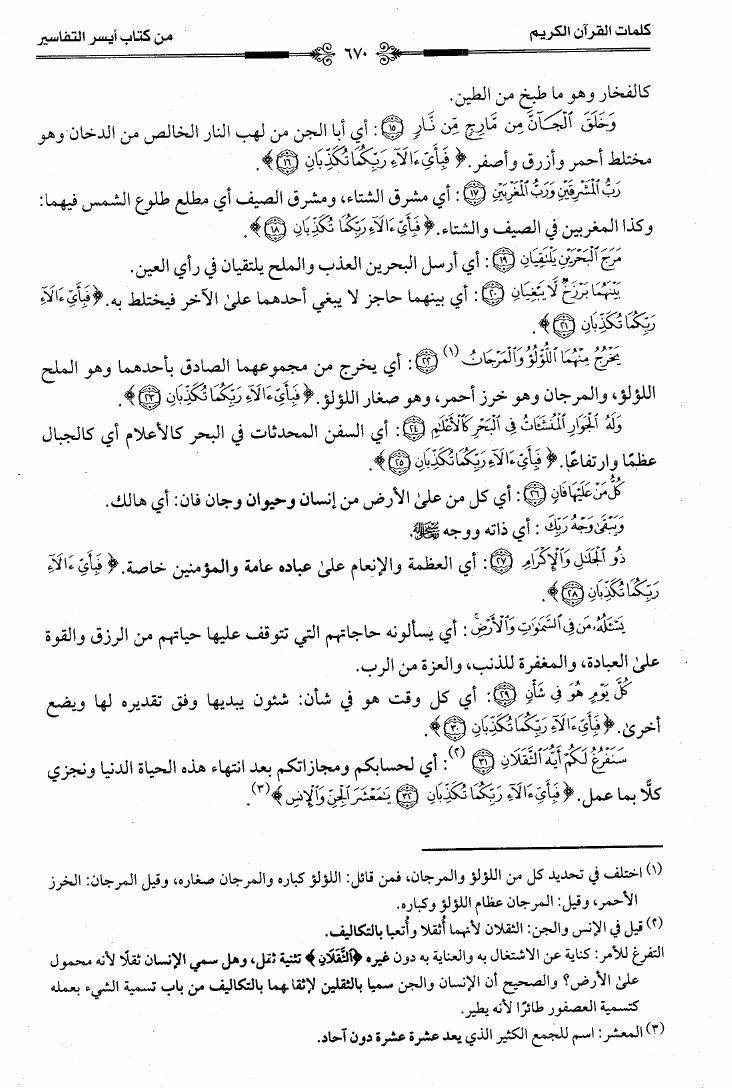 كلمات القرآن الكريم ٦٧٠ من كتاب أيسر التفاسير
كالفخار وهو ما طبخ من الطين.
وَخَلَقَ ٱلْجَآنَّ مِن مَّارِجٍ مِّن نَّارٍ ﴿١٥﴾: أي أبا الجن من لهب النار الخالص من الدخان وهو
مختلط أحمر وأزرق وأصفر. ﴿ فَبِأَىِّ ءَالَآءِ رَبِّكُمَا تُكَذِّبَانِ ﴿١٦﴾ ﴾.
رَبُّ ٱلْمَشْرِقَيْنِ وَرَبُّ ٱلْمَغْرِبَيْنِ ﴿١٧﴾: أي مشرق الشتاء، ومشرق الصيف أي مطلع طلوع الشمس فيهما:
وكذا المغربين في الصيف والشتاء. ﴿ فَبِأَىِّ ءَالَآءِ رَبِّكُمَا تُكَذِّبَانِ ﴿١٨﴾ ﴾.
مَرَجَ ٱلْبَحْرَيْنِ يَلْتَقِيَانِ ﴿١٩﴾: أي أرسل البحرين العذب والملح يلتقيان في رأي العين.
بَيْنَهُمَا بَرْزَخٌ لَّا يَبْغِيَانِ ﴿٢٠﴾: أي بينهما حاجز لا يبغي أحدهما علىٰ الآخر فيختلط به. ﴿ فَبِأَىِّ ءَالَآءِ
رَبِّكُمَا تُكَذِّبَانِ ﴿٢١﴾ ﴾.
يَخْرُجُ مِنْهُمَا ٱللُّؤْلُؤُ وَٱلْمَرْجَانُ (١) ﴿٢٢﴾: أي يخرج من مجموعهما الصادق بأحدهما وهو الملح
اللؤلؤ، والمرجان وهو خرز أحمر، وهو صغار اللؤلؤ. ﴿ فَبِأَىِّ ءَالَآءِ رَبِّكُمَا تُكَذِّبَانِ ﴿٢٣﴾ ﴾.
وَلَهُ ٱلْجَوَارِ ٱلْمُنشَـَٔاتُ فِى ٱلْبَحْرِ كَٱلْأَعْلَٰمِ ﴿٢٤﴾: أي السفن المحدثات في البحر كالأعلام أي كالجبال
عظمًا وارتفاعًا. ﴿ فَبِأَىِّ ءَالَآءِ رَبِّكُمَا تُكَذِّبَانِ ﴿٢٥﴾ ﴾.
كُلُّ مَنْ عَلَيْهَا فَانٍ ﴿٢٦﴾: أي كل من علىٰ الأرض من إنسان وحيوان وجان فان: أي هالك.
وَيَبْقَىٰ وَجْهُ رَبِّكَ: أي ذاته ووجه ﷻ.
ذُو ٱلْجَلَٰلِ وَٱلْإِكْرَامِ ﴿٢٧﴾: أي العظمة والإنعام علىٰ عباده عامة والمؤمنين خاصة. ﴿ فَبِأَىِّ ءَالَآءِ
رَبِّكُمَا تُكَذِّبَانِ ﴿٢٨﴾ ﴾.
يَسْـَٔلُهُۥ مَن فِى ٱلسَّمَٰوَٰتِ وَٱلْأَرْضِ ۚ: أي يسألونه حاجاتهم التي تتوقف عليها حياتهم من الرزق والقوة
علىٰ العبادة، والمغفرة للذنب، والعزة من الرب.
كُلَّ يَوْمٍ هُوَ فِى شَأْنٍ ﴿٢٩﴾: أي كل وقت هو في شأن: شئون يبديها وفق تقديره لها ويضع
أخرىٰ. ﴿ فَبِأَىِّ ءَالَآءِ رَبِّكُمَا تُكَذِّبَانِ ﴿٣٠﴾ ﴾.
سَنَفْرُغُ لَكُمْ أَيُّهَ ٱلثَّقَلَانِ ﴿٣١﴾ (٢): أي لحسابكم ومجازاتكم بعد انتهاء هذه الحياة الدنيا ونجزي
كلًّا بما عمل. ﴿ فَبِأَىِّ ءَالَآءِ رَبِّكُمَا تُكَذِّبَانِ ﴿٣٢﴾ يَٰمَعْشَرَ ٱلْجِنِّ وَٱلْإِنسِ ﴾ (٣).
(١) اختلف في تحديد كل من اللؤلؤ والمرجان، فمن قائل: اللؤلؤ كباره والمرجان صغاره، وقيل المرجان: الخرز
الأحمر، وقيل: المرجان عظام اللؤلؤ وكباره.
(٢) قيل في الإنس والجن: الثقلان لأنهما أُثقلا وأُتعبا بالتكاليف.
التفرغ للأمر: كناية عن الاشتغال به والعناية به دون غيره ﴿ ٱلثَّقَلَانِ ﴾ تثنية ثقل، وهل سمي الإنسان ثقلًا لأنه محمول
علىٰ الأرض؟ والصحيح أن الإنسان والجن سميا بالثقلين لإثقالهما بالتكاليف من باب تسمية الشيء بعمله
كتسمية العصفور طائرًا لأنه يطير.
(٣) المعشر: اسم للجمع الكثير الذي يعد عشرة عشرة دون آحاد.